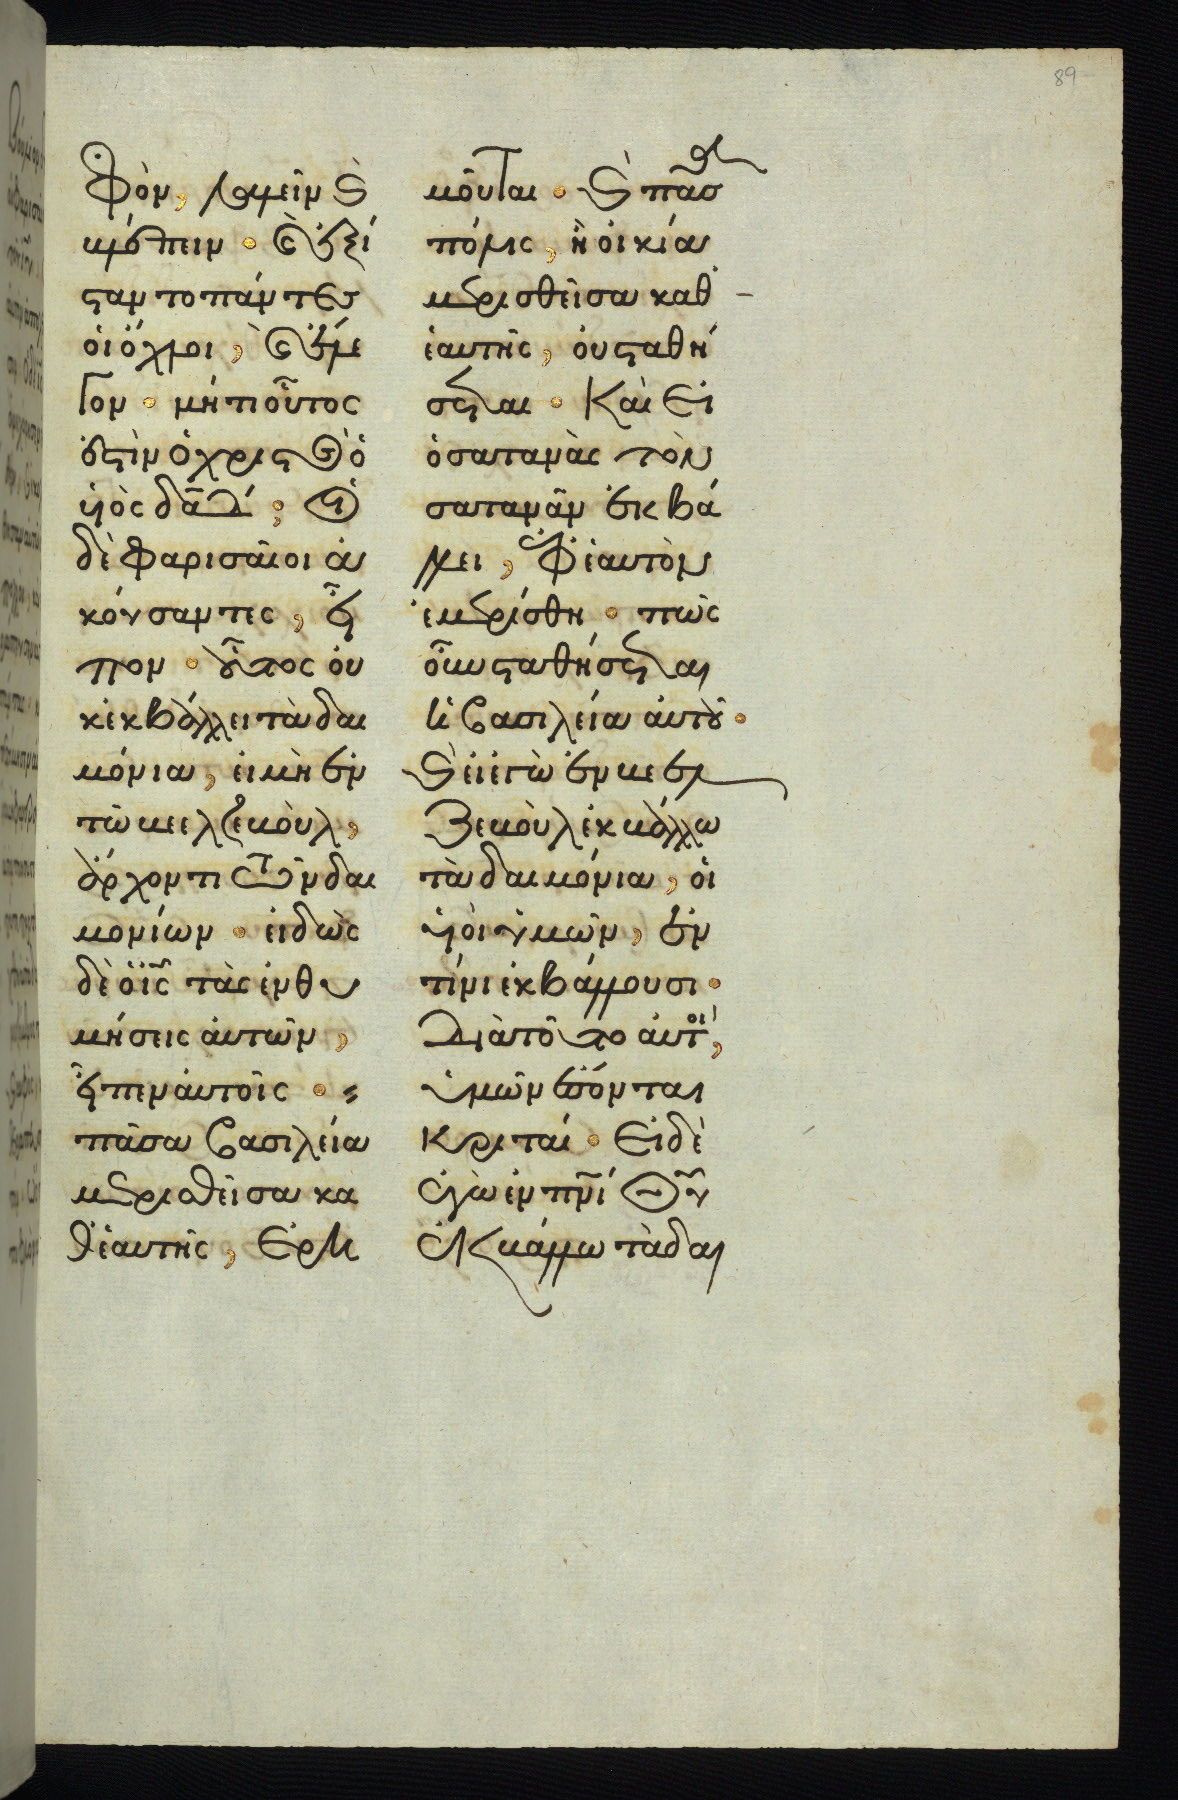 89
φὸν, λαλεῖν ϗ
βλέπειν · ϗ ἐξί
σταντο πάντες
οἱ ὄχλοι, ϗ ἔλε
γον · μήτι οὗτος
ἐστὶν ὁ χριστὸς ὁ
υἱὸς δαδ ; οἱ
δὲ φαρισαῖοι ἀ
κούσαντες, εἶ
πον · οὗτος οὐ
κ ἐκβάλλει τὰ δαι
μόνια, εἰ μὴ ἐν
τῶ βεελζεβοὺλ,
ἄρχοντι τῶν δαι
μονίων · εἰδὼς
δὲ ὁ ἰς τὰς ἐνθυ
μήσεις αὐτῶν,
εἶπεν αὐτοῖς ·
πᾶσα βασιλεία
μερισθεῖσα κα
θ' ἑαυτῆς, ἐρη
μοῦται · ϗ πᾶσα
πόλις, ἢ οἰκία
μερισθεῖσα καθ'
ἑαυτῆς, οὐ σταθή
σεται · Καὶ εἰ
ὁ σατανὰς τὸν
σατανᾶν ἐκβά
λλει, ἐφ' ἑαυτὸν
ἐμερίσθη · πῶς
οὖν σταθήσεται
ἡ βασιλεία αὐτοῦ ·
ϗ εἰ ἐγὼ ἐν βεελ
ζεβοὺλ ἐκβάλλω
τὰ δαιμόνια, οἱ
υἱοὶ ὑμῶν, ἐν
τίνι ἐκβάλλουσι ·
Διὰ τοῦτο αὐτοὶ,
ὑμῶν ἔσονται
κριταί · Εἰ δὲ
ἐγὼ ἐν πνί θυ
ἐκβάλλω τὰ δαι